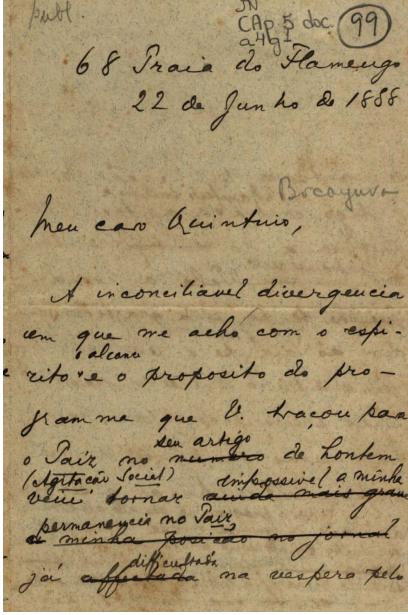 publ.
JN
CAp 5 doc. 99
a4g1
68 Praia do Flamengo
22 de Junho de 1888
Bocayuva
Meu caro Quintino,
A inconciliavel divergencia
em que me acho com o espi-
o alcance
rito e o proposito do pro-
gramma que V. traçou para
seu artigo
o Paiz no numero de hontem
(Agitação Social) impossivel a minha
veiu tornar ainda mais grave
permanencia no Paiz
a minha posição no jornal
difficultada
já affectada na vespera pelo